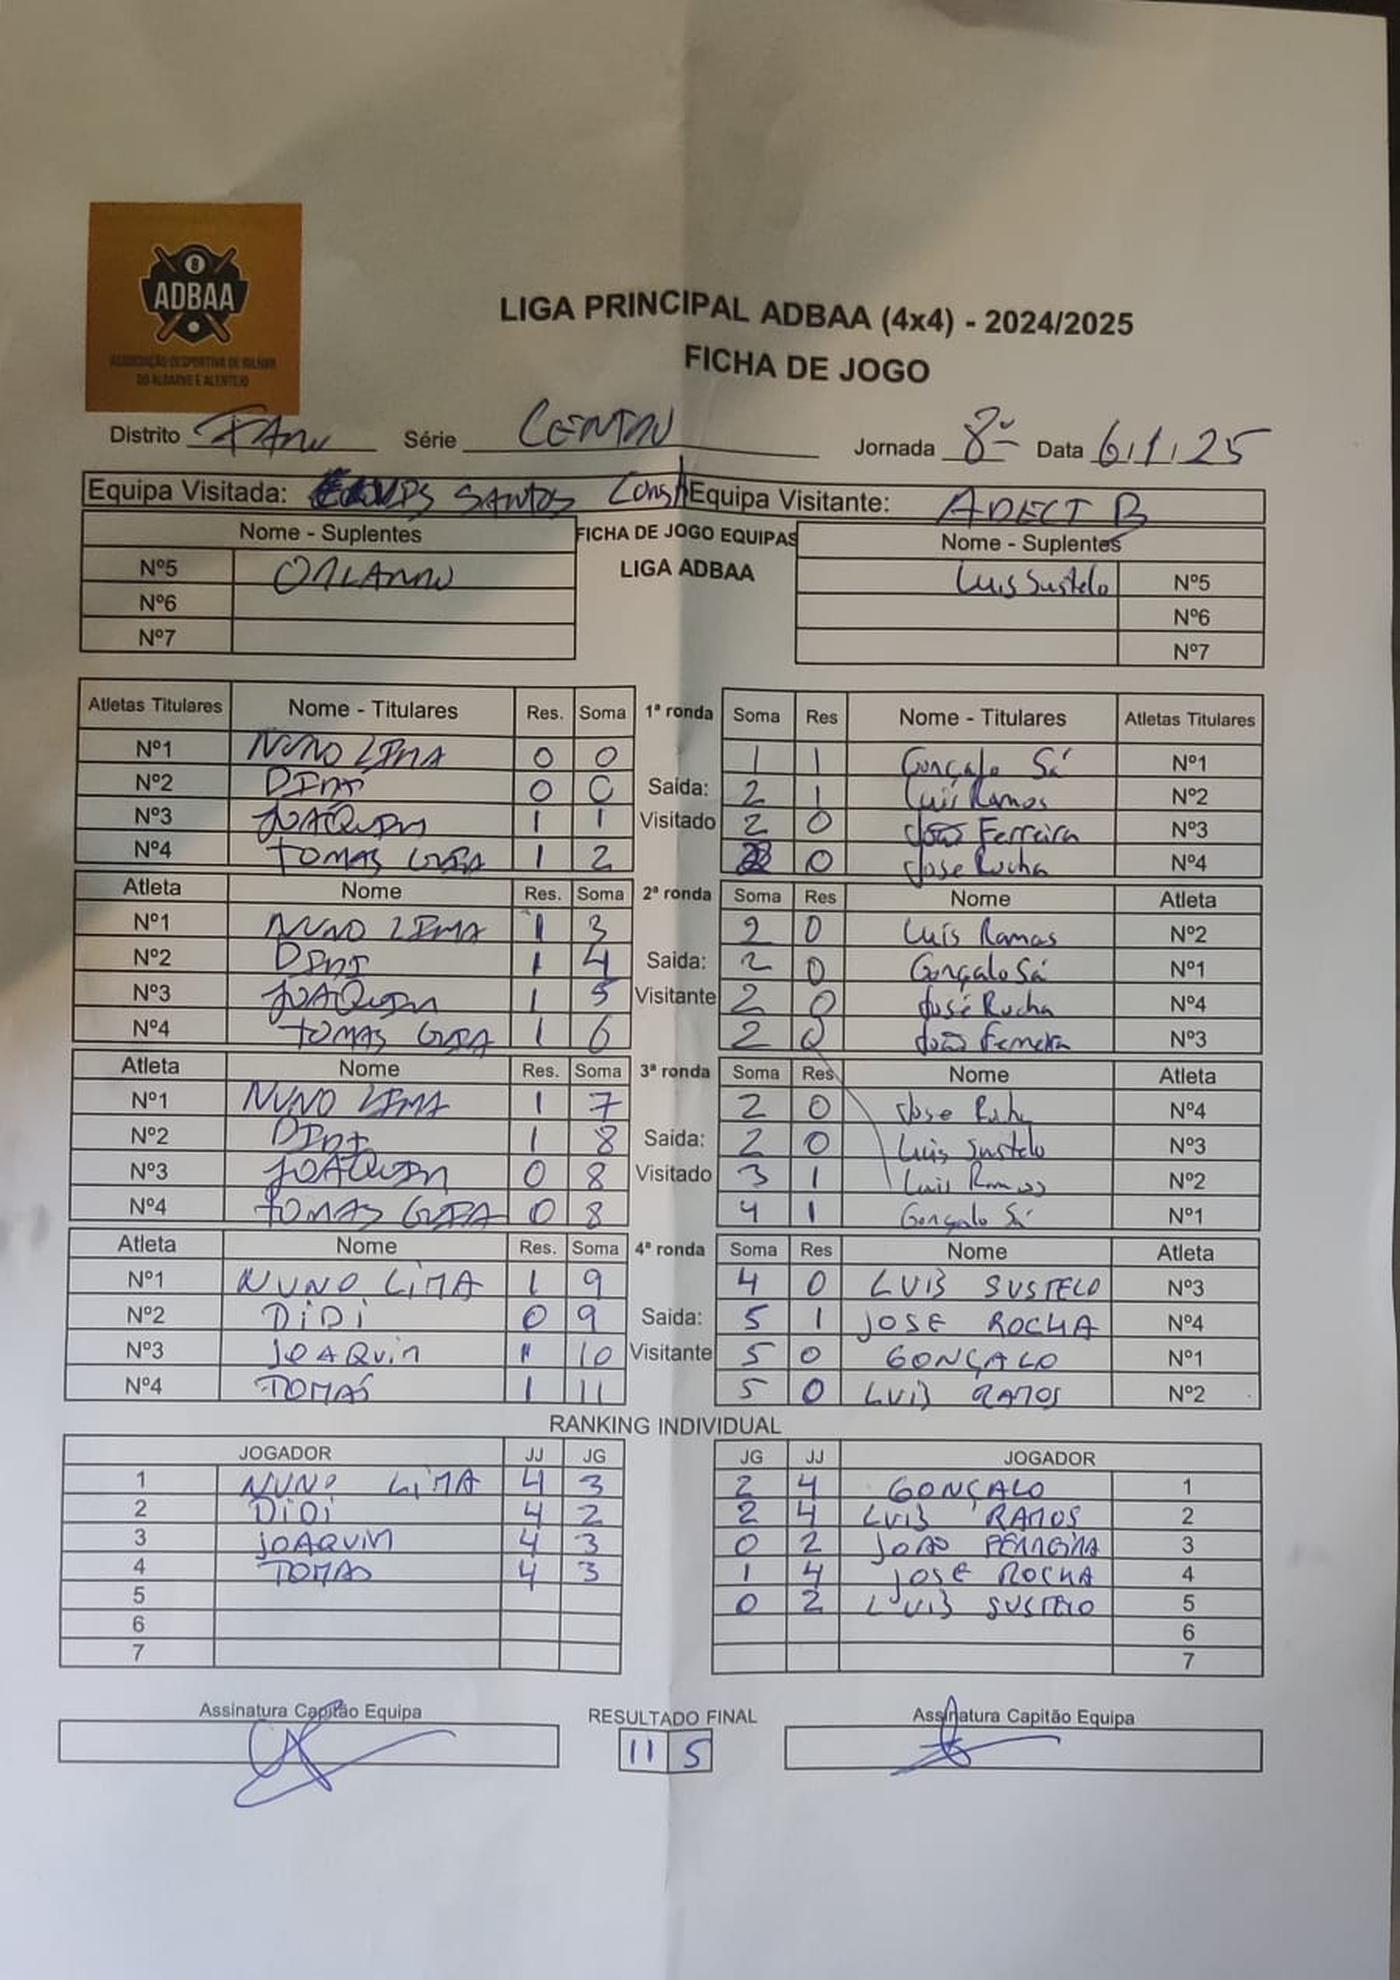 8
ADBAA
ASSOCIAÇÃO DESPORTIVA DE BILHAR
DO ALGARVE E ALENTEJO
LIGA PRINCIPAL ADBAA (4x4) - 2024/2025
FICHA DE JOGO
Distrito FARO Série CENTRO Jornada 8ª Data 6/1/25
Equipa Visitada: SANTOS Const Equipa Visitante: ADECT B
Nome - Suplentes FICHA DE JOGO EQUIPAS Nome - Suplentes
Nº5 ORLANDO LIGA ADBAA Luis Sustelo Nº5
Nº6 Nº6
Nº7 Nº7
Atletas Titulares Nome - Titulares Res. Soma 1ª ronda Soma Res Nome - Titulares Atletas Titulares
Nº1 NUNO LIMA 0 0 1 1 Gonçalo Sá Nº1
Nº2 DIDI 0 0 Saida: 2 1 Luís Ramos Nº2
Nº3 JOAQUIM 1 1 Visitado 2 0 João Ferreira Nº3
Nº4 TOMAS 1 2 2 0 Jose Rocha Nº4
Atleta Nome Res. Soma 2ª ronda Soma Res Nome Atleta
Nº1 NUNO LIMA 1 3 2 0 Luís Ramos Nº2
Nº2 DIDI 1 4 Saida: 2 0 Gonçalo Sá Nº1
Nº3 JOAQUIM 1 5 Visitante 2 0 José Rocha Nº4
Nº4 TOMAS 1 6 2 0 João Ferreira Nº3
Atleta Nome Res. Soma 3ª ronda Soma Res Nome Atleta
Nº1 NUNO LIMA 1 7 2 0 Jose Nº4
Nº2 DIDI 1 8 Saida: 2 0 Luis Sustelo Nº3
Nº3 JOAQUIM 0 8 Visitado 3 1 Luis Ramos Nº2
Nº4 TOMAS 0 8 4 1 Gonçalo Sá Nº1
Atleta Nome Res. Soma 4ª ronda Soma Res Nome Atleta
Nº1 NUNO LIMA 1 9 4 0 LUIS SUSTELO Nº3
Nº2 DIDI 0 9 Saida: 5 1 JOSE ROCHA Nº4
Nº3 JOAQUIM 1 10 Visitante 5 0 GONÇALO Nº1
Nº4 TOMÁS 1 11 5 0 LUIS RAMOS Nº2
RANKING INDIVIDUAL
JOGADOR JJ JG JG JJ JOGADOR
1 NUNO LIMA 4 3 2 4 GONÇALO 1
2 DIDI 4 2 2 4 LUIS RAMOS 2
3 JOAQUIM 4 3 0 2 JOAO FERREIRA 3
4 TOMAS 4 3 1 4 JOSE ROCHA 4
5 0 2 LUIS SUSTELO 5
6 6
7 7
Assinatura Capitão Equipa RESULTADO FINAL Assinatura Capitão Equipa
11 5